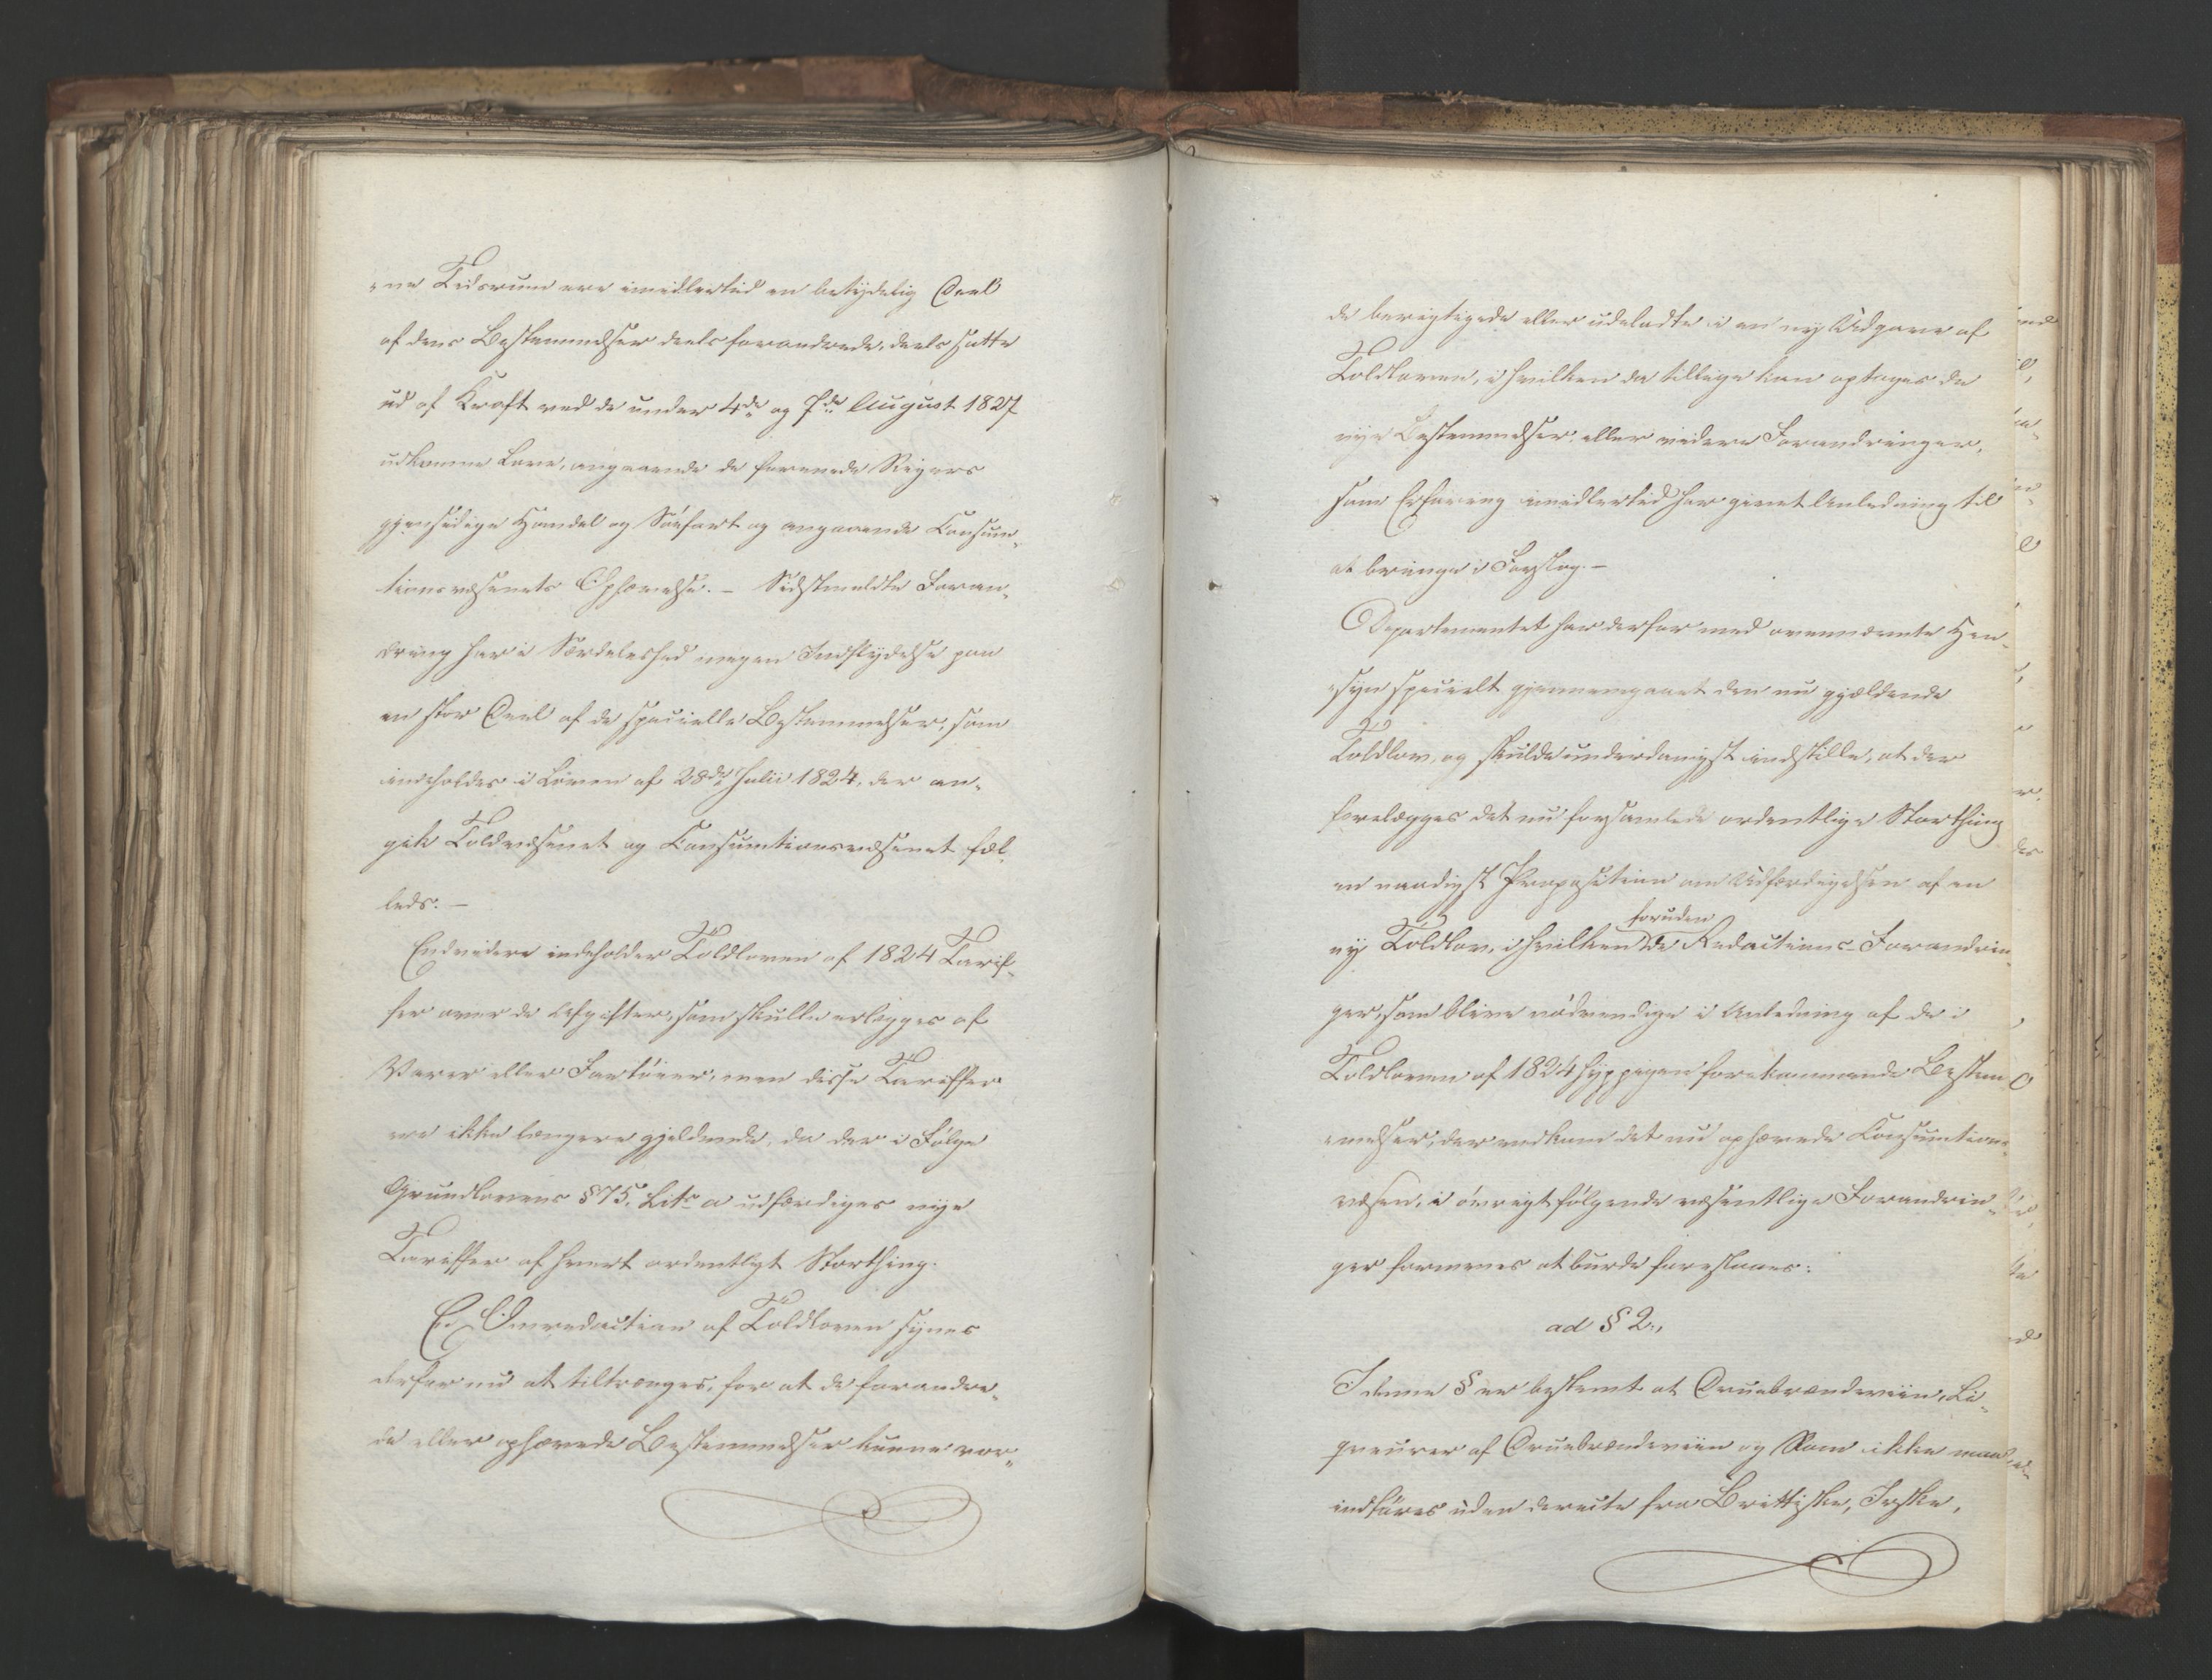 „ne Tidsrum ere imidlertid en betydelig Deel
af dens Bestemmelser deels forandrede, deels satte
ud af Kraft ved de under 4de og 7de August 1827
udkomne Love, angaaende de forenede Rigers
gjensidige Handel og Søefart og angaaende Consum„
tionsvæsenets Ophævelse. – Sidstmeldte Foran„
dring har i Særdeleshed megen Indflydelse paa
en stor Deel af de specielle Bestemmelser, som
indeholdes i Loven af 28de Julii 1824, der an„
gik Toldvæsenet og Consumtionsvæsenet fæl„
leds. –
Endvidere indeholder Toldloven af 1824 Tarif„
fer over de Afgifter, som skulle erlægges af
Varer eller Fartøier, men disse Tariffer
ere ikke længere gjeldende, da der i Følge
Grundlovens § 75. Litr a udfærdiges nye
Tariffer af hvert ordentligt Storthing.
En Omredaction af Toldloven synes
derfor nu at tiltrænges, for at de forandre„
de eller ophævede Bestemmelser kunne vor„
de berigtigede eller udeladte i en ny Udgave af
Toldloven, i hvilken da tillige kan optages de
nye Bestemmelser, eller videre Forandringer,
som Erfaring imidlertid har givet Anledning til
at bringe i Forslag. –
Departementet har derfor med ovennævnte Hen„
„syn specielt gjennemgaaet den nu gjældende
Toldlov, og skulde underdanigst indstille, at der
forelægges det nu forsamlede ordentlige Storthing
en naadigst Proposition om Udfærdigelsen af en
ny Toldlov, i hvilken foruden de Redactions-Forandrin„
ger, som blive nødvendige i Anledning af de i
Toldloven af 1824 hyppigen forekommende Bestem
„melser, der vedkom det nu ophævede Consumtions„
væsen, i øvrigt følgende væsentlige Forandrin„
ger formenes at burde foreslaaes:
ad § 2.,
I denne § er bestemt at Druebrændeviin, Li„
queurer af Druebrændeviin og Rom ikke maae
indføres uden directe fra Brittiske, Irske,